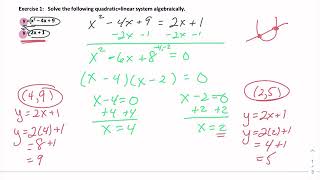 Exercise 1: Solve the following quadratic-linear system algebraically.
y = x² - 4x + 9
y = 2x + 1
x² - 4x + 9 = 2x + 1
-2x - 1 -2x - 1
x² - 6x + 8 = 0
-4, -2
(x - 4)(x - 2) = 0
x - 4 = 0
+4 +4
x = 4
x - 2 = 0
+2 +2
x = 2
(4, 9)
y = 2x + 1
y = 2(4) + 1
= 8 + 1
= 9
(2, 5)
y = 2x + 1
y = 2(2) + 1
= 4 + 1
= 5